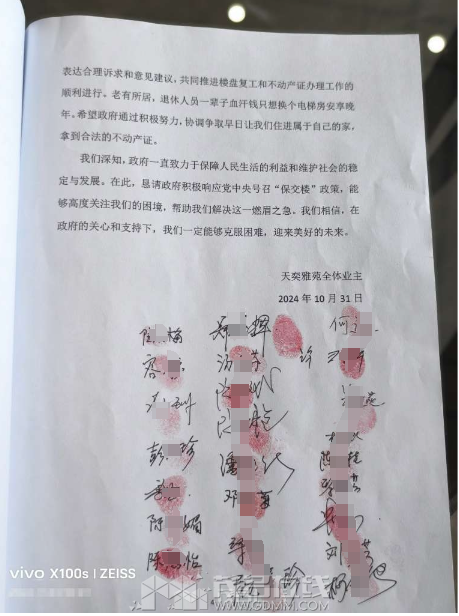 表达合理诉求和意见建议，共同推进楼盘复工和不动产证办理工作的
顺利进行。老有所居，退休人员一辈子血汗钱只想换个电梯房安享晚
年。希望政府通过积极努力，协调争取早日让我们住进属于自己的家，
拿到合法的不动产证。
我们深知，政府一直致力于保障人民生活的利益和维护社会的稳
定与发展。在此，恳请政府积极响应党中央号召“保交楼”政策，能
够高度关注我们的困境，帮助我们解决这一燃眉之急。我们相信，在
政府的关心和支持下，我们一定能够克服困难，迎来美好的未来。
天奕雅苑全体业主
2024 年 10 月 31 日
何
许
彭 珍
潘
陈
邓
陈 媚
刘
陈 怡
vivo X100s | ZEISS
茂名在线
WWW.GDMM.COM